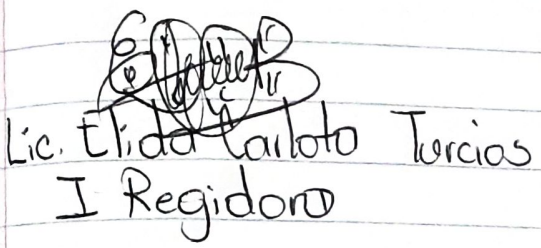 Lic. Elida Carloto Turcios
I Regidora